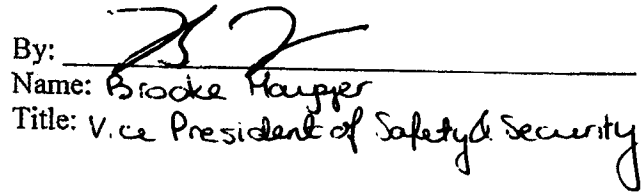 By:
Name: Brooke
Title: Vice President of Safety & Security